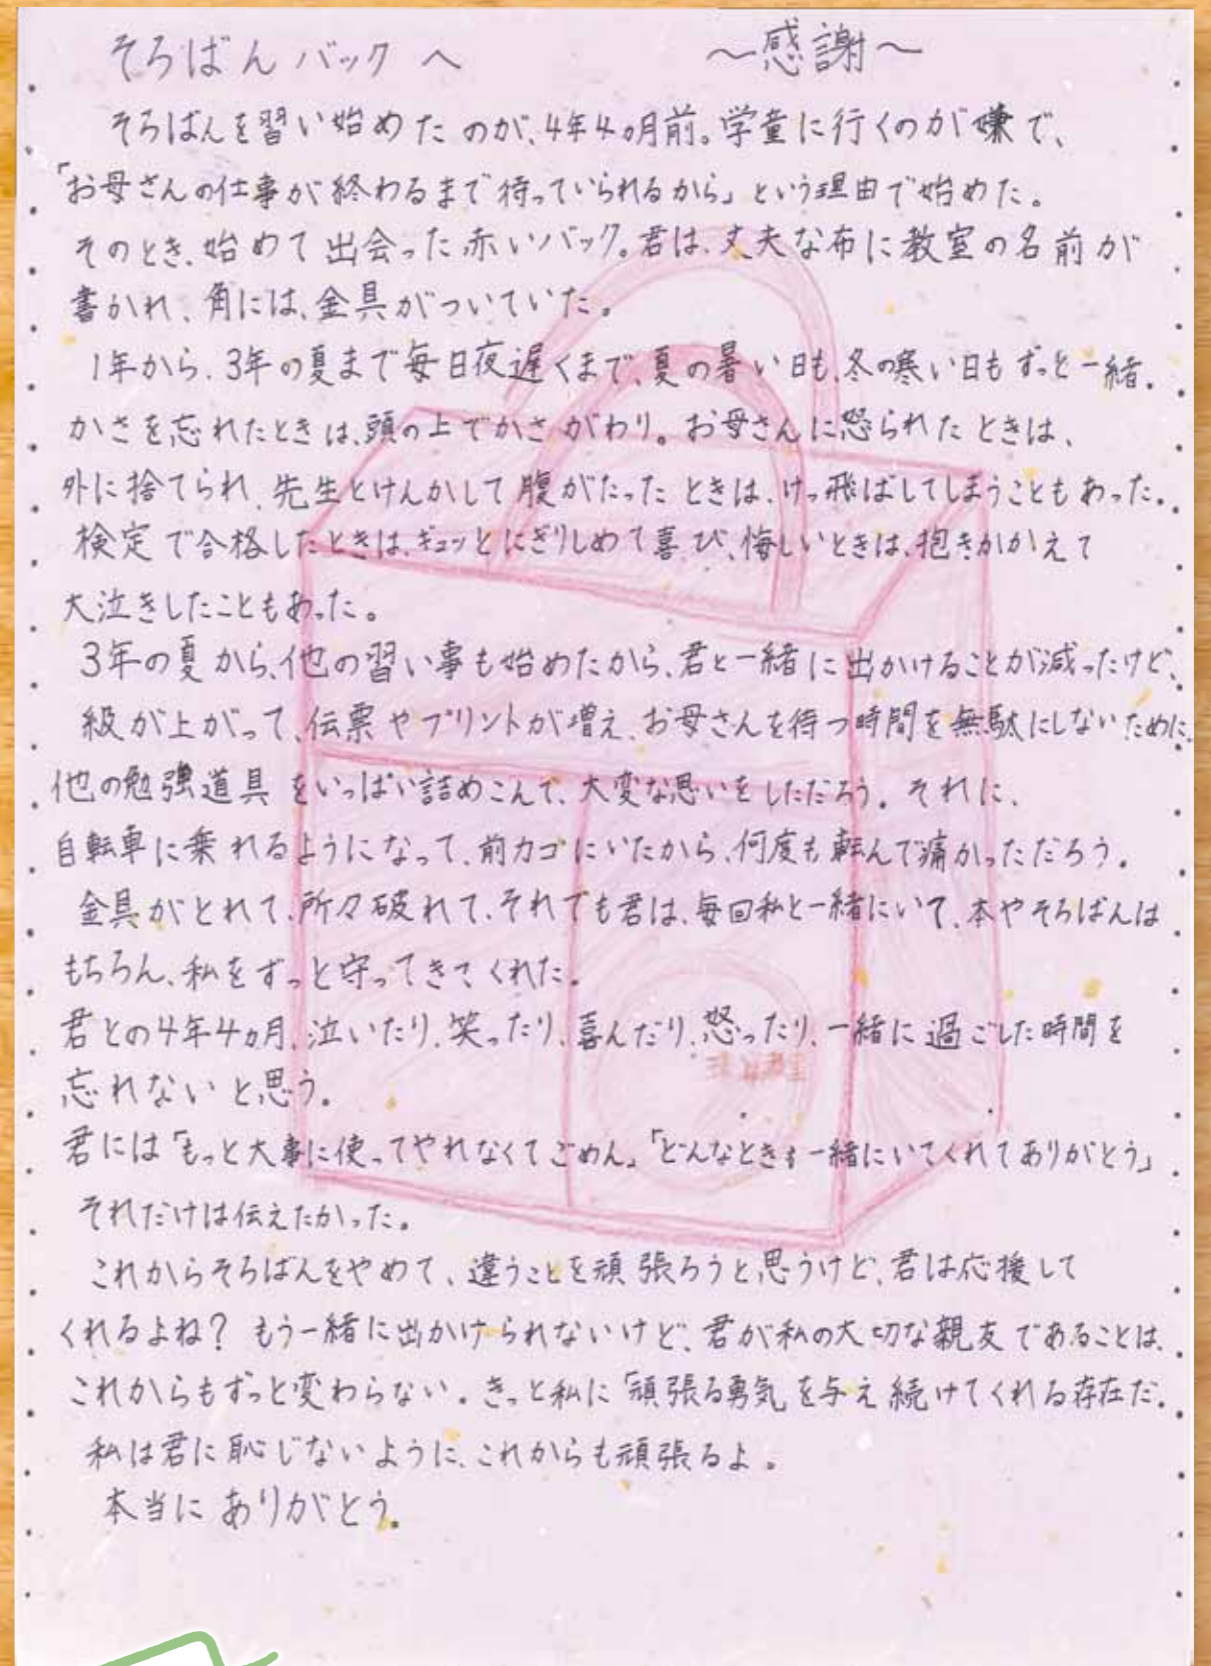 そろばんバックへ　～感謝～
そろばんを習い始めたのが、4年4ヵ月前。学童に行くのが嫌で、
「お母さんの仕事が終わるまで待っていられるから」という理由で始めた。
そのとき、始めて出会った赤いバック。君は、丈夫な布に教室の名前が
書かれ、角には、金具がついていた。
1年から、3年の夏まで毎日夜遅くまで、夏の暑い日も、冬の寒い日もずっと一緒。
かさを忘れたときは、頭の上でかさがわり。お母さんに怒られたときは、
外に捨てられ、先生とけんかして腹がたったときは、けっ飛ばしてしまうこともあった。
検定で合格したときは、ギュッとにぎりしめて喜び、悔しいときは、抱きかかえて
大泣きしたこともあった。
3年の夏から、他の習い事も始めたから、君と一緒に出かけることが減ったけど、
級が上がって、伝票やプリントが増え、お母さんを待つ時間を無駄にしないために、
他の勉強道具をいっぱい詰めこんで、大変な思いをしただろう。それに、
自転車に乗れるようになって、前カゴにいたから、何度も転んで痛かっただろう。
金具がとれて、所々破れて、それでも君は、毎回私と一緒にいて、本やそろばんは
もちろん、私をずっと守ってきてくれた。
君との4年4ヵ月、泣いたり、笑ったり、喜んだり、怒ったり、一緒に過ごした時間を
忘れないと思う。
君には「もっと大事に使ってやれなくてごめん」「どんなときも一緒にいてくれてありがとう」
それだけは伝えたかった。
これからそろばんをやめて、違うことを頑張ろうと思うけど、君は応援して
くれるよね？もう一緒に出かけられないけど、君が私の大切な親友であることは、
これからもずっと変わらない。きっと私に「頑張る勇気を与え続けてくれる存在だ。
私は君に恥じないように、これからも頑張るよ。
本当にありがとう。